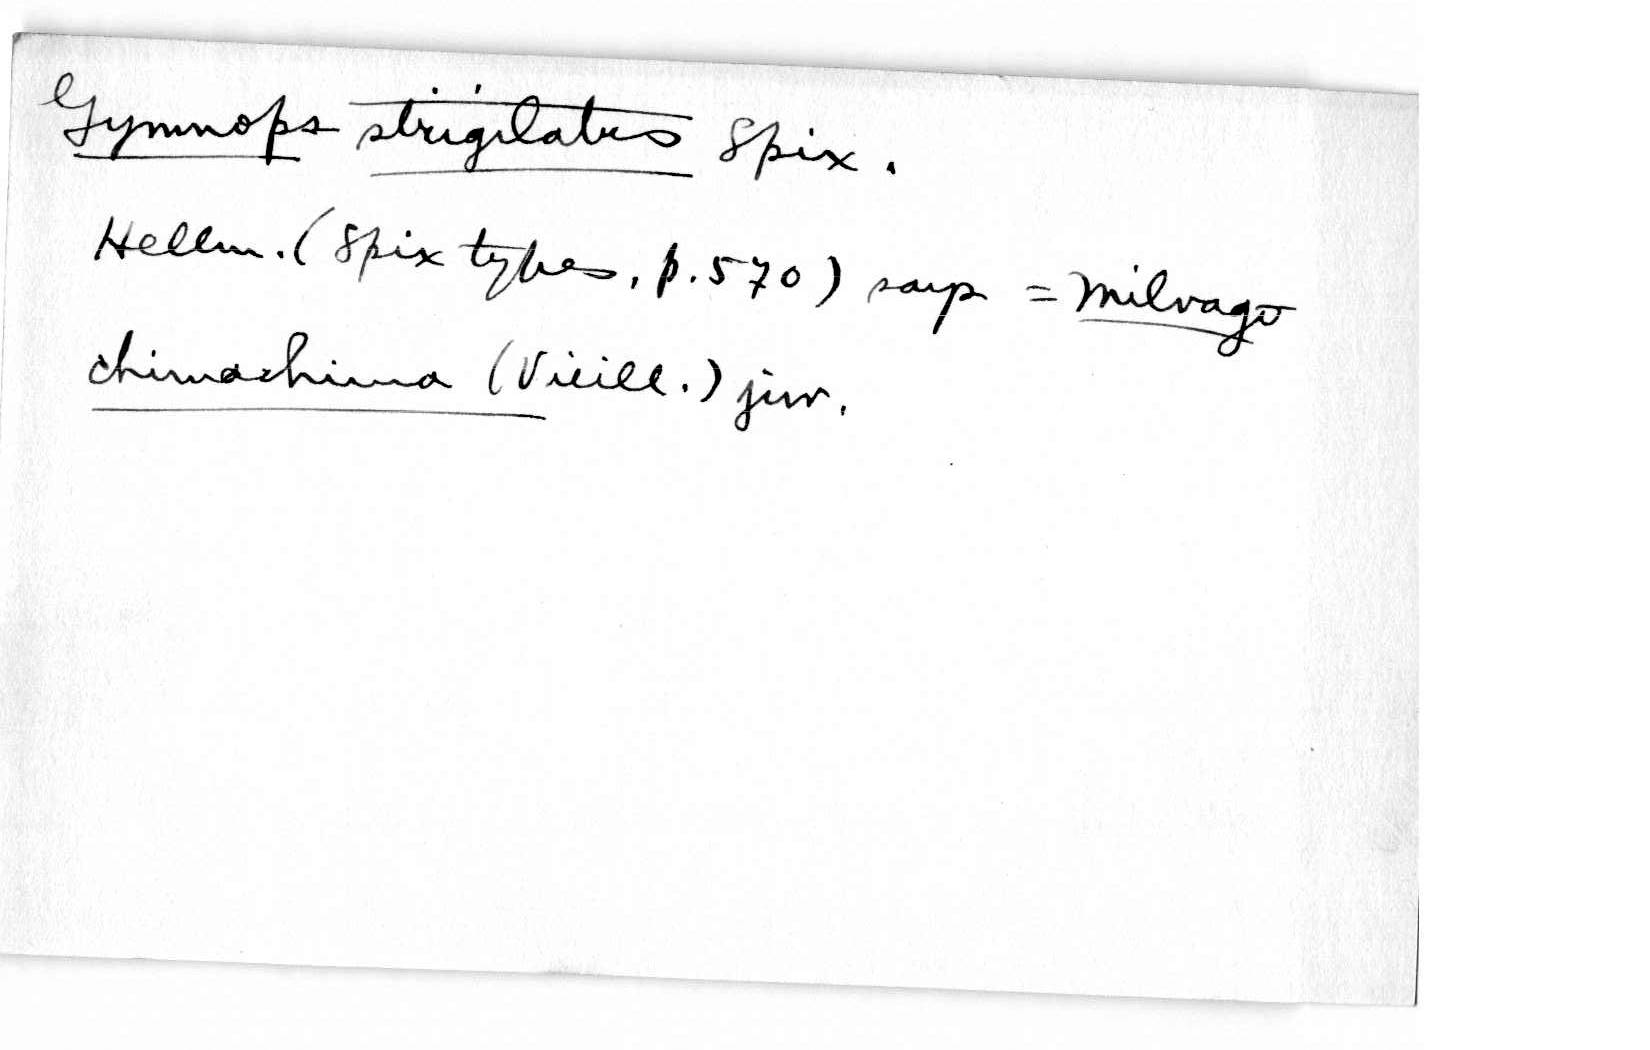 Gymnops strigilatus Spix.
Hellm. (Spix types, p. 570) says = Milvago
chimachima (Vieill.) juv.